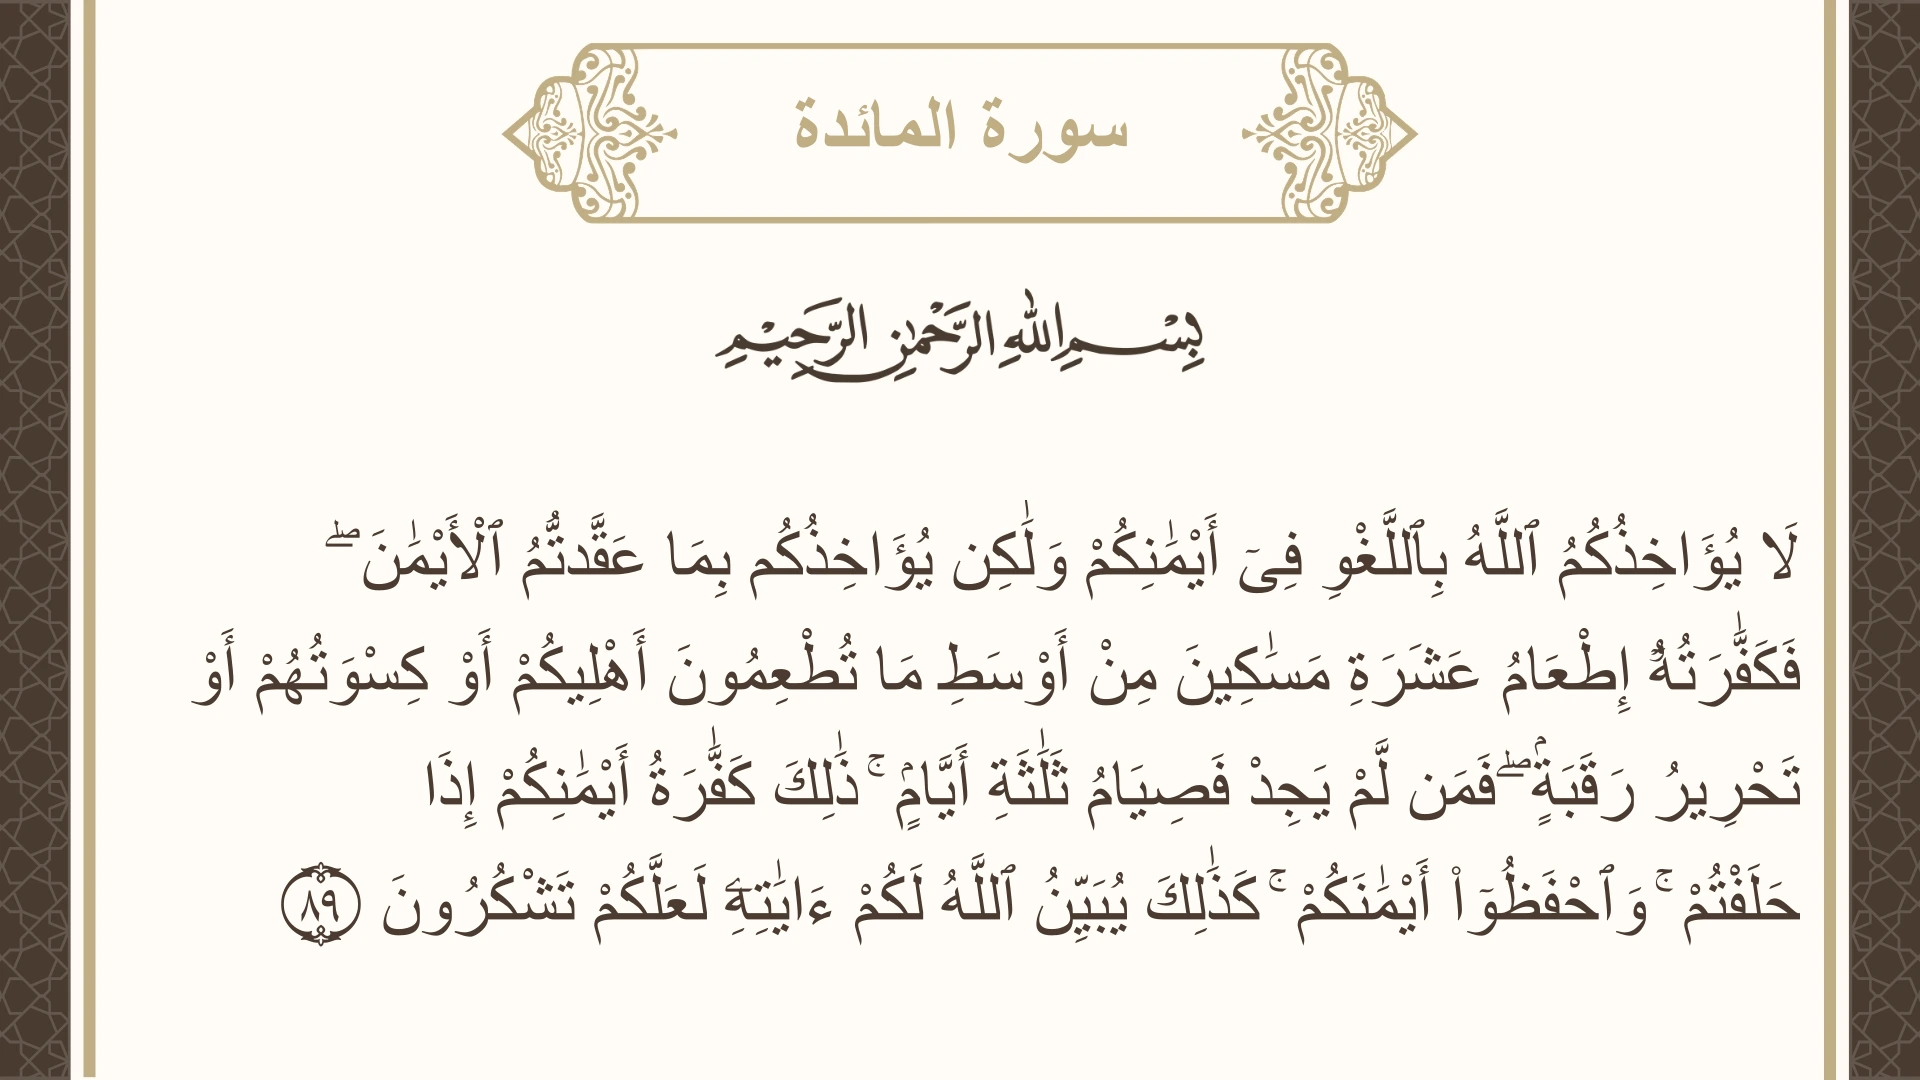 سورة المائدة
بِسْمِ اللهِ الرَّحْمٰنِ الرَّحِيْمِ
لَا يُؤَاخِذُكُمُ ٱللَّهُ بِٱللَّغْوِ فِىٓ أَيْمَٰنِكُمْ وَلَٰكِن يُؤَاخِذُكُم بِمَا عَقَّدتُّمُ ٱلْأَيْمَٰنَ ۖ
فَكَفَّٰرَتُهُۥٓ إِطْعَامُ عَشَرَةِ مَسَٰكِينَ مِنْ أَوْسَطِ مَا تُطْعِمُونَ أَهْلِيكُمْ أَوْ كِسْوَتُهُمْ أَوْ
تَحْرِيرُ رَقَبَةٍۢ ۖ فَمَن لَّمْ يَجِدْ فَصِيَامُ ثَلَٰثَةِ أَيَّامٍۢ ۚ ذَٰلِكَ كَفَّٰرَةُ أَيْمَٰنِكُمْ إِذَا
حَلَفْتُمْ ۚ وَٱحْفَظُوٓا۟ أَيْمَٰنَكُمْ ۚ كَذَٰلِكَ يُبَيِّنُ ٱللَّهُ لَكُمْ ءَايَٰتِهِۦ لَعَلَّكُمْ تَشْكُرُونَ ٨٩